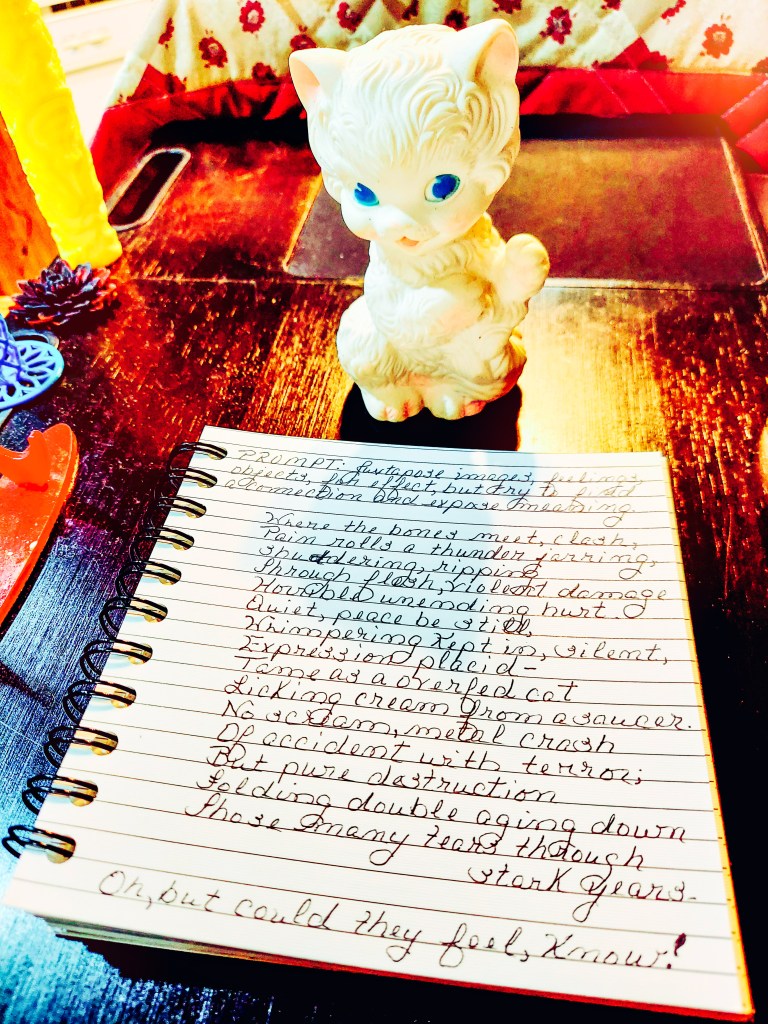 PROMPT: Juxtapose images, feelings,
objects, for effect, but try to find
a connection and expose meaning.
Where the bones meet, clash,
Pain rolls a thunder jarring,
shuddering, ripping
Through flesh, violent damage
Horrible unending hurt.
Quiet, peace be still,
Whimpering kept in, silent,
Expression placid—
Tame as a overfed cat
Licking cream from a saucer.
No scream, metal crash
Of accident with terror;
But pure dastruction
Folding double aging down
Those many tears through
stark years.
Oh, but could they feel, know!